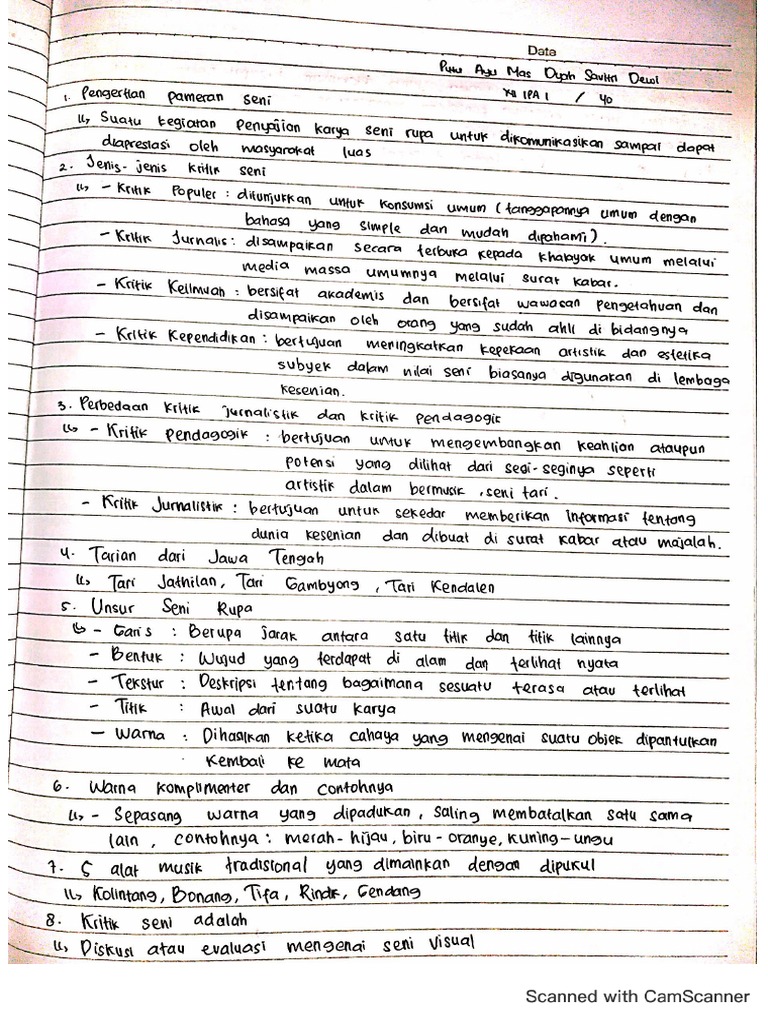 Date
Putu Ayu Mas Dyah Savitri Dewi
XII IPA 1 / 40
1. Pengertian pameran seni
↳ Suatu kegiatan penyajian karya seni rupa untuk dikomunikasikan sampai dapat
diapresiasi oleh masyarakat luas
2. Jenis-jenis kritik seni
↳ - Kritik Populer : ditunjukkan untuk konsumsi umum (tanggapannya umum dengan
bahasa yang simple dan mudah dipahami).
- Kritik Jurnalis : disampaikan secara terbuka kepada khalayak umum melalui
media massa umumnya melalui surat kabar.
- Kritik Keilmuan : bersifat akademis dan bersifat wawasan pengetahuan dan
disampaikan oleh orang yang sudah ahli di bidangnya
- Kritik Kependidikan : bertujuan meningkatkan kepekaan artistik dan estetika
subyek dalam nilai seni biasanya digunakan di lembaga
kesenian.
3. Perbedaan kritik jurnalistik dan kritik pendagogic
↳ - Kritik pendagogik : bertujuan untuk mengembangkan keahlian ataupun
potensi yang dilihat dari segi-seginya seperti
artistik dalam bermusik, seni tari.
- Kritik Jurnalistik : bertujuan untuk sekedar memberikan informasi tentang
dunia kesenian dan dibuat di surat kabar atau majalah.
4. Tarian dari Jawa Tengah
↳ Tari Jathilan, Tari Gambyong, Tari Kendalen
5. Unsur Seni Rupa
↳ - Garis : Berupa jarak antara satu titik dan titik lainnya
- Bentuk : Wujud yang terdapat di alam dan terlihat nyata
- Tekstur : Deskripsi tentang bagaimana sesuatu terasa atau terlihat
- Titik : Awal dari suatu karya
- Warna : Dihasilkan ketika cahaya yang mengenai suatu objek dipantulkan
kembali ke mata
6. Warna komplimenter dan contohnya
↳ - Sepasang warna yang dipadukan, saling membatalkan satu sama
lain, contohnya : merah-hijau, biru-oranye, kuning-ungu
7. 5 alat musik tradisional yang dimainkan dengan dipukul
↳ Kolintang, Bonang, Tifa, Rindik, Gendang
8. Kritik seni adalah
↳ Diskusi atau evaluasi mengenai seni visual
Scanned with CamScanner